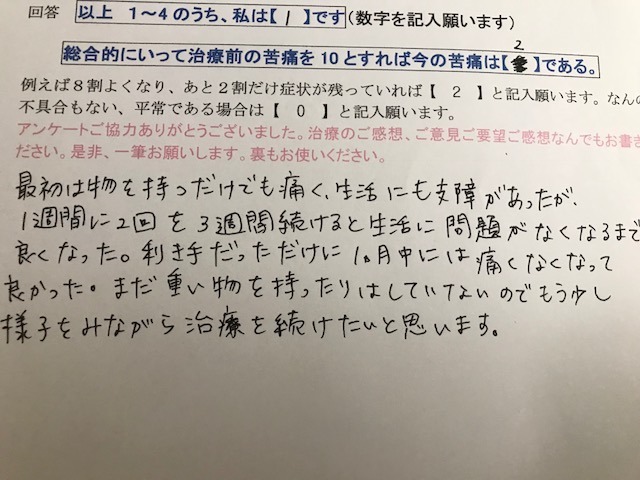 回答 以上 1～4のうち、私は【 1 】です(数字を記入願います)
2
総合的にいって治療前の苦痛を10とすれば今の苦痛は【 】である。
例えば８割よくなり、あと２割だけ症状が残っていれば【 2 】と記入願います。なんの
不具合もない、平常である場合は【 0 】と記入願います。
アンケートご協力ありがとうございました。治療のご感想、ご意見ご要望ご感想なんでもお書き
ださい。是非、一筆お願いします。裏もお使いください。
最初は物を持つだけでも痛く、生活にも支障があったが、
1週間に2回を3週間続けると生活に問題がなくなるまで
良くなった。利き手だっただけに1ヵ月中には痛くなくなって
良かった。まだ重い物を持ったりはしていないのでもう少し
様子をみながら治療を続けたいと思います。